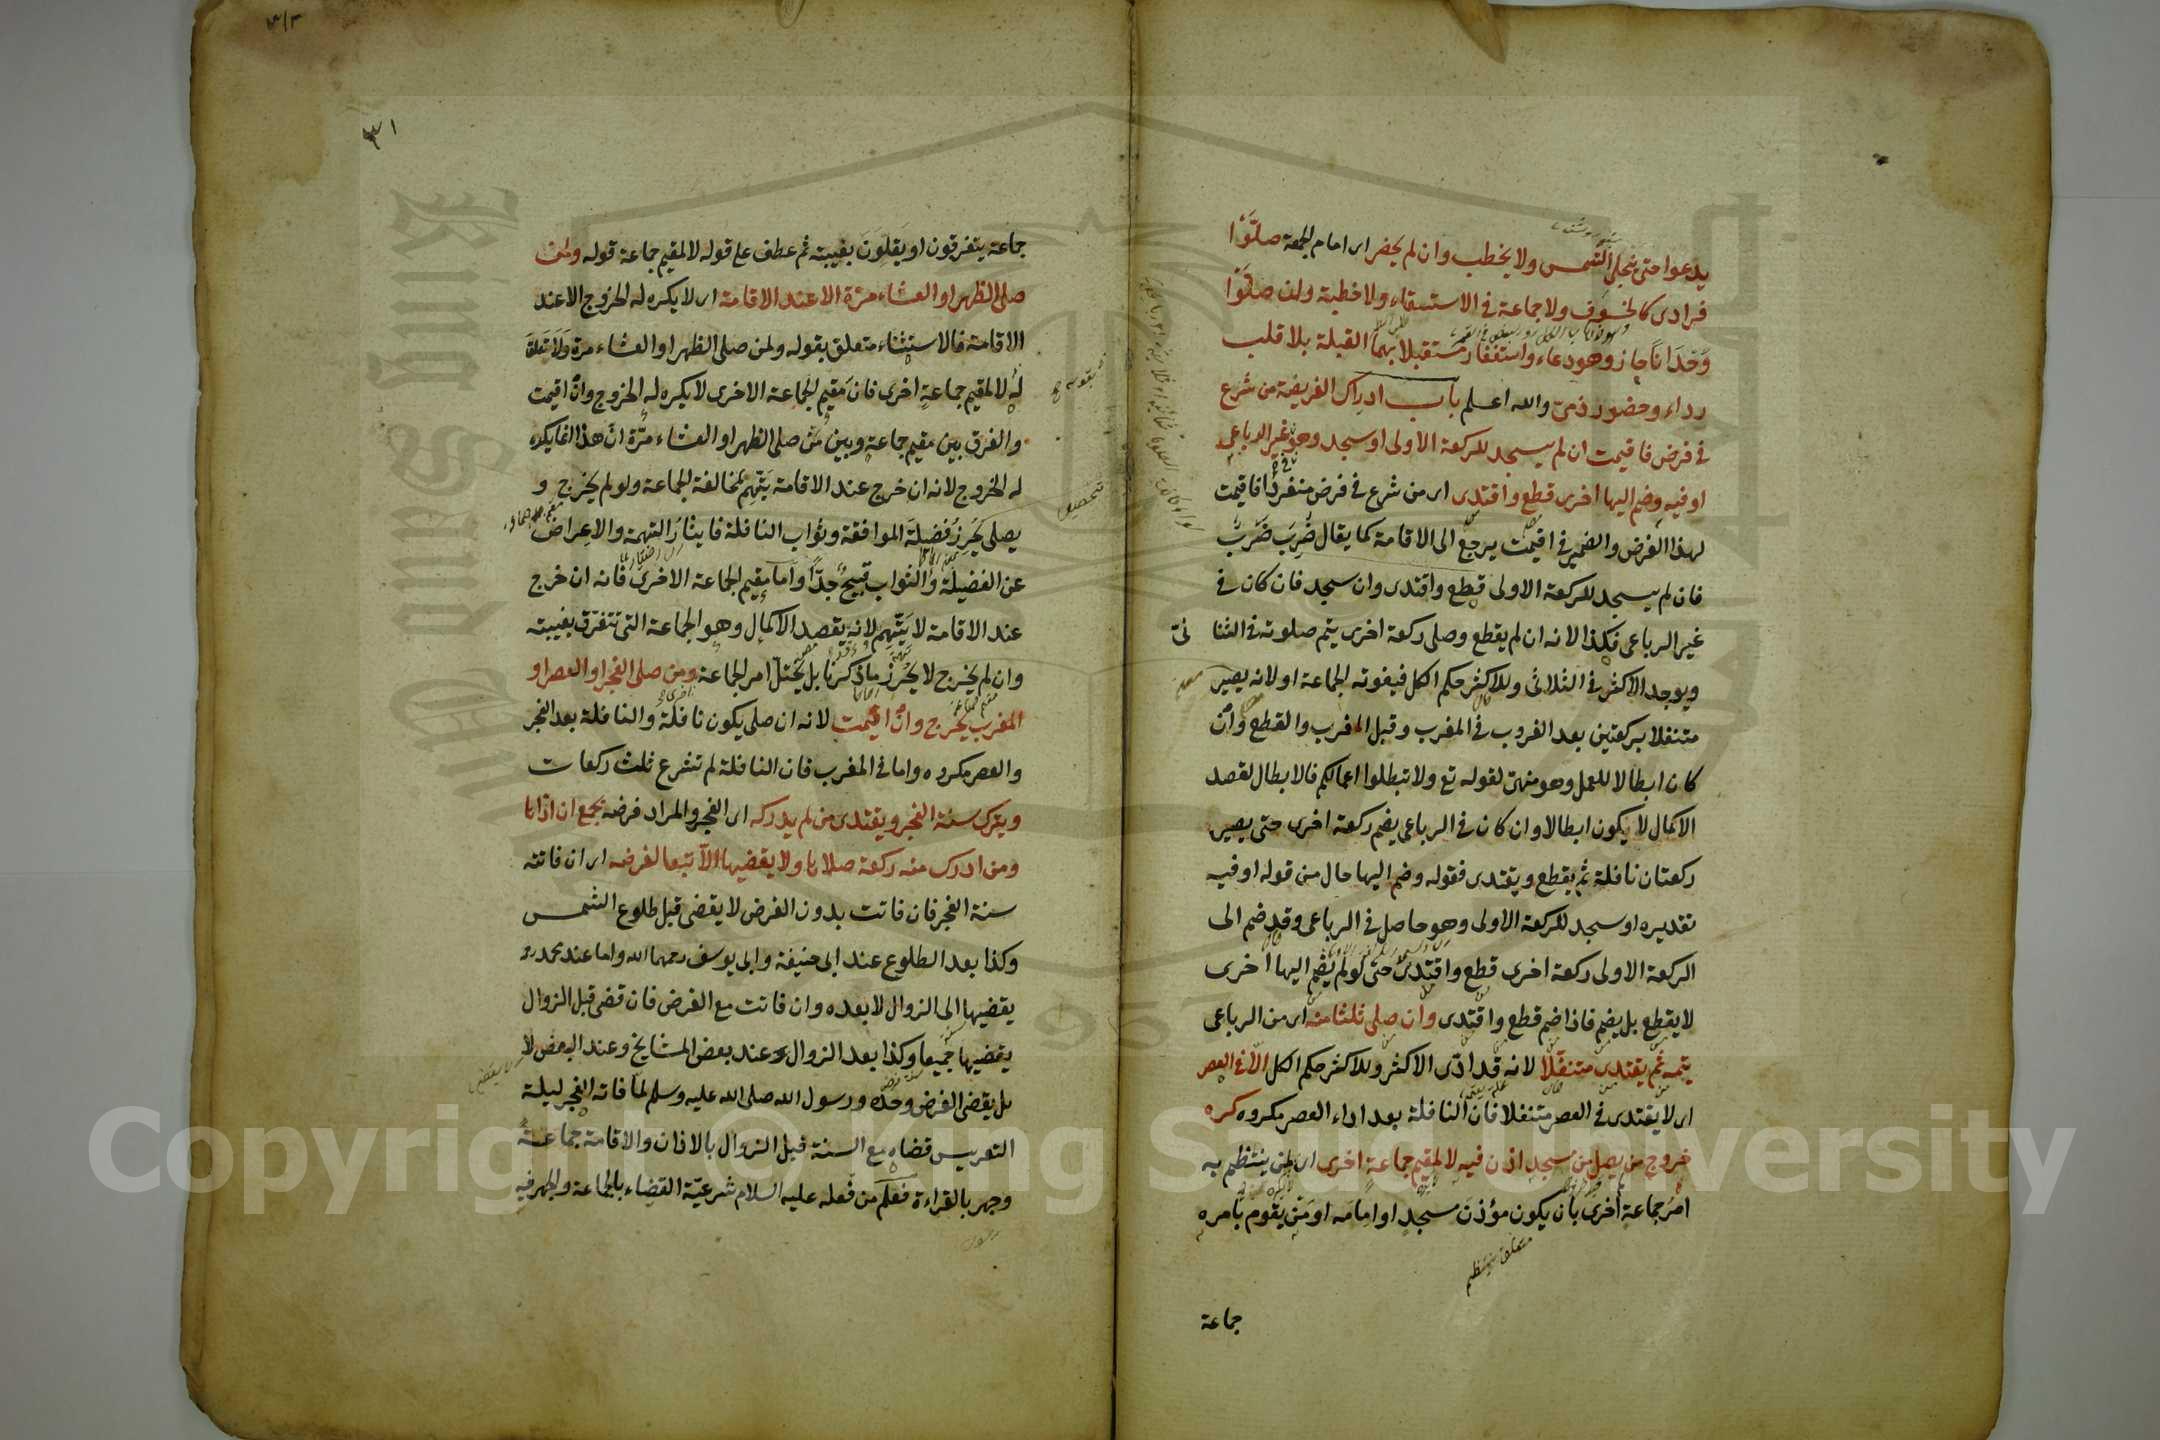 يدعوا حتى تنجلى الشمس ولا يخطب وان لم يحضر اى امام الجمعة صلوا
فرادى كالخسوف ولا جماعة فى الاستسقاء ولا خطبة وان صلوا
وحدانا جاز وهو دعاء واستغفار مستقبلا بهما القبلة بلا قلب
رداء وحضور ذمى والله اعلم باب ادراك الفريضة من شرع
فى فرض فاقيمت ان لم يسجد للركعة الاولى او سجد وهو غير الرباعى
او فيه وضم اليها اخرى قطع واقتدى اى من شرع فى فرض منفردا فاقيمت
لهذا الفرض والضمير فى اقيمت يرجع الى الاقامة كما يقال ضرب ضرب
فان لم يسجد للركعة الاولى قطع واقتدى وان سجد فان كان فى
غير الرباعى فكذا لانه ان لم يقطع وصلى ركعة اخرى يتم صلوته فى الثنا ئى
ويوجد الاكثر فى الثلاثى وللاكثر حكم الكل فيفوته الجماعة او لانه يصير
متنفلا بركعتين بعد الغروب فى المغرب وقبل المغرب والقطع وان
كان ابطالا للعمل وهو منهى لقوله تع ولا تبطلوا اعمالكم فالابطال لقصد
الاكمال لا يكون ابطالا وان كان فى الرباعى يضم ركعة اخرى حتى يصير
ركعتان نافلة ثم يقطع ويقتدى فقوله وضم اليها حال من قوله او فيه
تقديره او سجد للركعة الاولى وهو حاصل فى الرباعى وقد ضم الى
الركعة الاولى ركعة اخرى قطع واقتدى حتى لو لم يضم اليها اخرى
لا يقطع بل يضم فاذا ضم قطع واقتدى وان صلى ثلثا منه اى من الرباعى
يتمه ثم يقتدى متنفلا لانه قد ادى الاكثر وللاكثر حكم الكل الا فى العصر
اى لا يقتدى فى العصر متنفلا فان النافلة بعد اداء العصر مكروه كره
خروج من يصل من مسجد اذن فيه لا لمقيم جماعة اخرى اى لمن ينتظم به
امر جماعة اخرى بان يكون مؤذن مسجد او امامه او من يقوم بامره
متعلق بينتظم
جماعة
٣١
جماعة يتفرقون او يقلون بغيبته ثم عطف على قوله لا لمقيم جماعة قوله ولمن
صلى الظهر او العشاء مرة الا عند الاقامة اى لا يكره له الخروج الا عند
الاقامة فالاستثناء متعلق بقوله ولمن صلى الظهر او العشاء مرة ولا تعلق
له لا لمقيم جماعة اخرى فان مقيم الجماعة الاخرى لا يكره له الخروج وان اقيمت
والفرق بين مقيم جماعة وبين من صلى الظهر او العشاء مرة ان هذا انما يكره
له الخروج لانه ان خرج عند الاقامة يتهم بمخالفة الجماعة ولو لم يخرج و
يصلى يحرز فضيلة الموافقة وثواب النافلة فايثار التهمة والاعراض
عن الفضيلة والثواب قبيح جدا واما مقيم الجماعة الاخرى فانه ان خرج
عند الاقامة لا يتهم لانه يقصد الاكمال وهو الجماعة التى تتفرق بغيبته
وان لم يخرج لا يحرز ما ذكرنا بل يختل امر الجماعة ومن صلى الفجر او العصر او
المغرب يخرج وان اقيمت لانه ان صلى يكون نافلة والنافلة بعد الفجر
والعصر مكروه واما فى المغرب فان النافلة لم تشرع ثلث ركعات
ويترك سنة الفجر ويقتدى من لم يدركه اى الفجر والمراد فرضه بجمع ان اداها
ومن ادرك منه ركعة صلاها ولا يقضيها الا تبعا لفرضه اى ان فاتته
سنة الفجر فان فاتت بدون الفرض لا يقضى قبل طلوع الشمس
وكذا بعد الطلوع عند ابى حنيفة وابى يوسف رحمهما الله واما عند محمد رح
يقضيها الى الزوال لا بعده وان فاتت مع الفرض فان قضى قبل الزوال
يقضيها جميعا وكذا بعد الزوال عند بعض المشايخ وعند البعض لا
بل يقضى الفرض وحده ورسول الله صلى الله عليه وسلم لما فاته الفجر ليلة
التعريس قضاه مع السنة قبل الزوال بالاذان والاقامة جماعة
وجهر بالقراءة فعلم من فعله عليه السلام شرعية القضاء بالجماعة والجهر فيه
Copyright © King Saud University